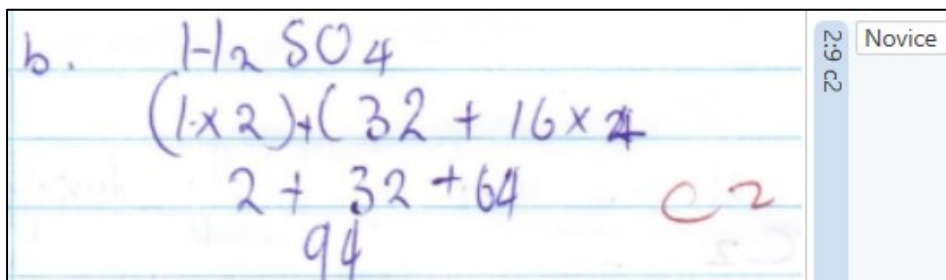 b. H₂SO4
(1×2)+(32 + 16×4
2 + 32 +64
94
C2
2:9 c2
Novice